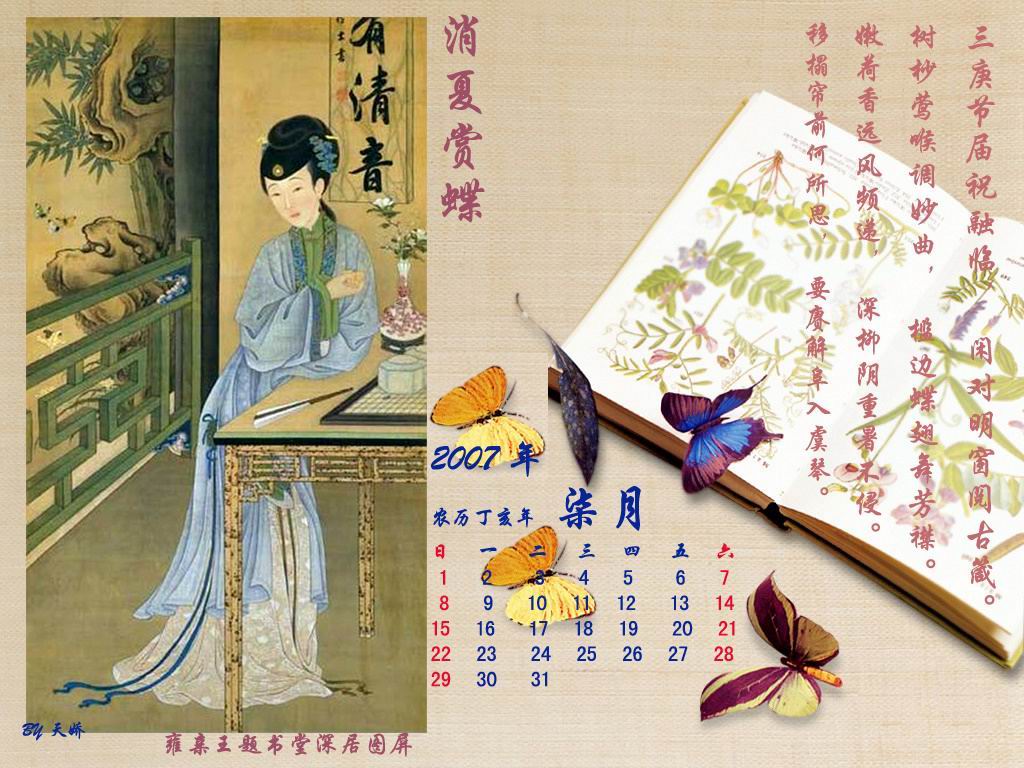 消夏赏蝶
三庚节届祝融临，闲对明窗阅古箴。
树杪莺喉调妙曲，槛边蝶翅舞芳襟。
嫩荷香远风频递，深柳阴重暑不侵。
移榻帘前何所思，要赓解阜入虞琴。
有清音
2007 年
农历丁亥年 柒月
日 一 二 三 四 五 六
1 2 3 4 5 6 7
8 9 10 11 12 13 14
15 16 17 18 19 20 21
22 23 24 25 26 27 28
29 30 31
BY 天娇
雍亲王题书堂深居图屏